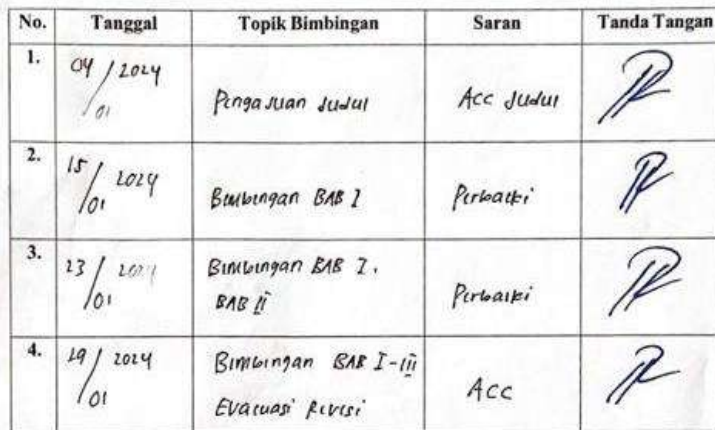 No. Tanggal Topik Bimbingan Saran Tanda Tangan
1. 04/01 2024 Pengajuan Judul Acc Judul
2. 15/01 2024 Bimbingan BAB I Perbaiki
3. 23/01 2024 Bimbingan BAB I, Perbaiki
BAB II
4. 29/01 2024 Bimbingan BAB I-III Acc
Evaluasi Revisi